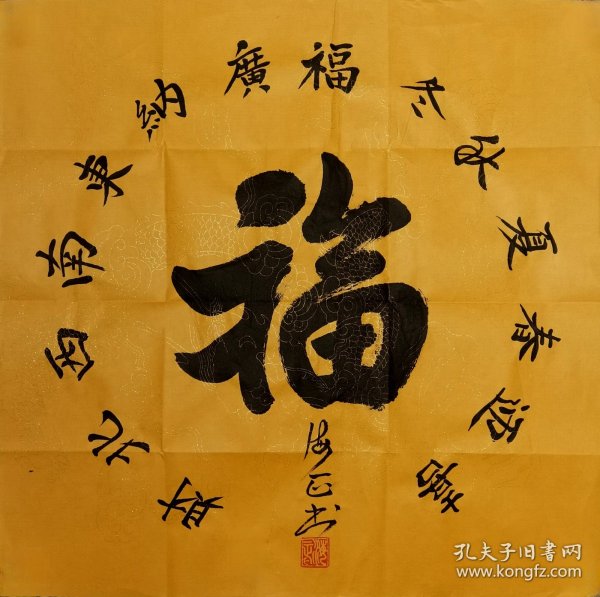 喜迎春夏秋冬福
廣納東南西北財
福
海正书
孔夫子旧书网
www.kongfz.com